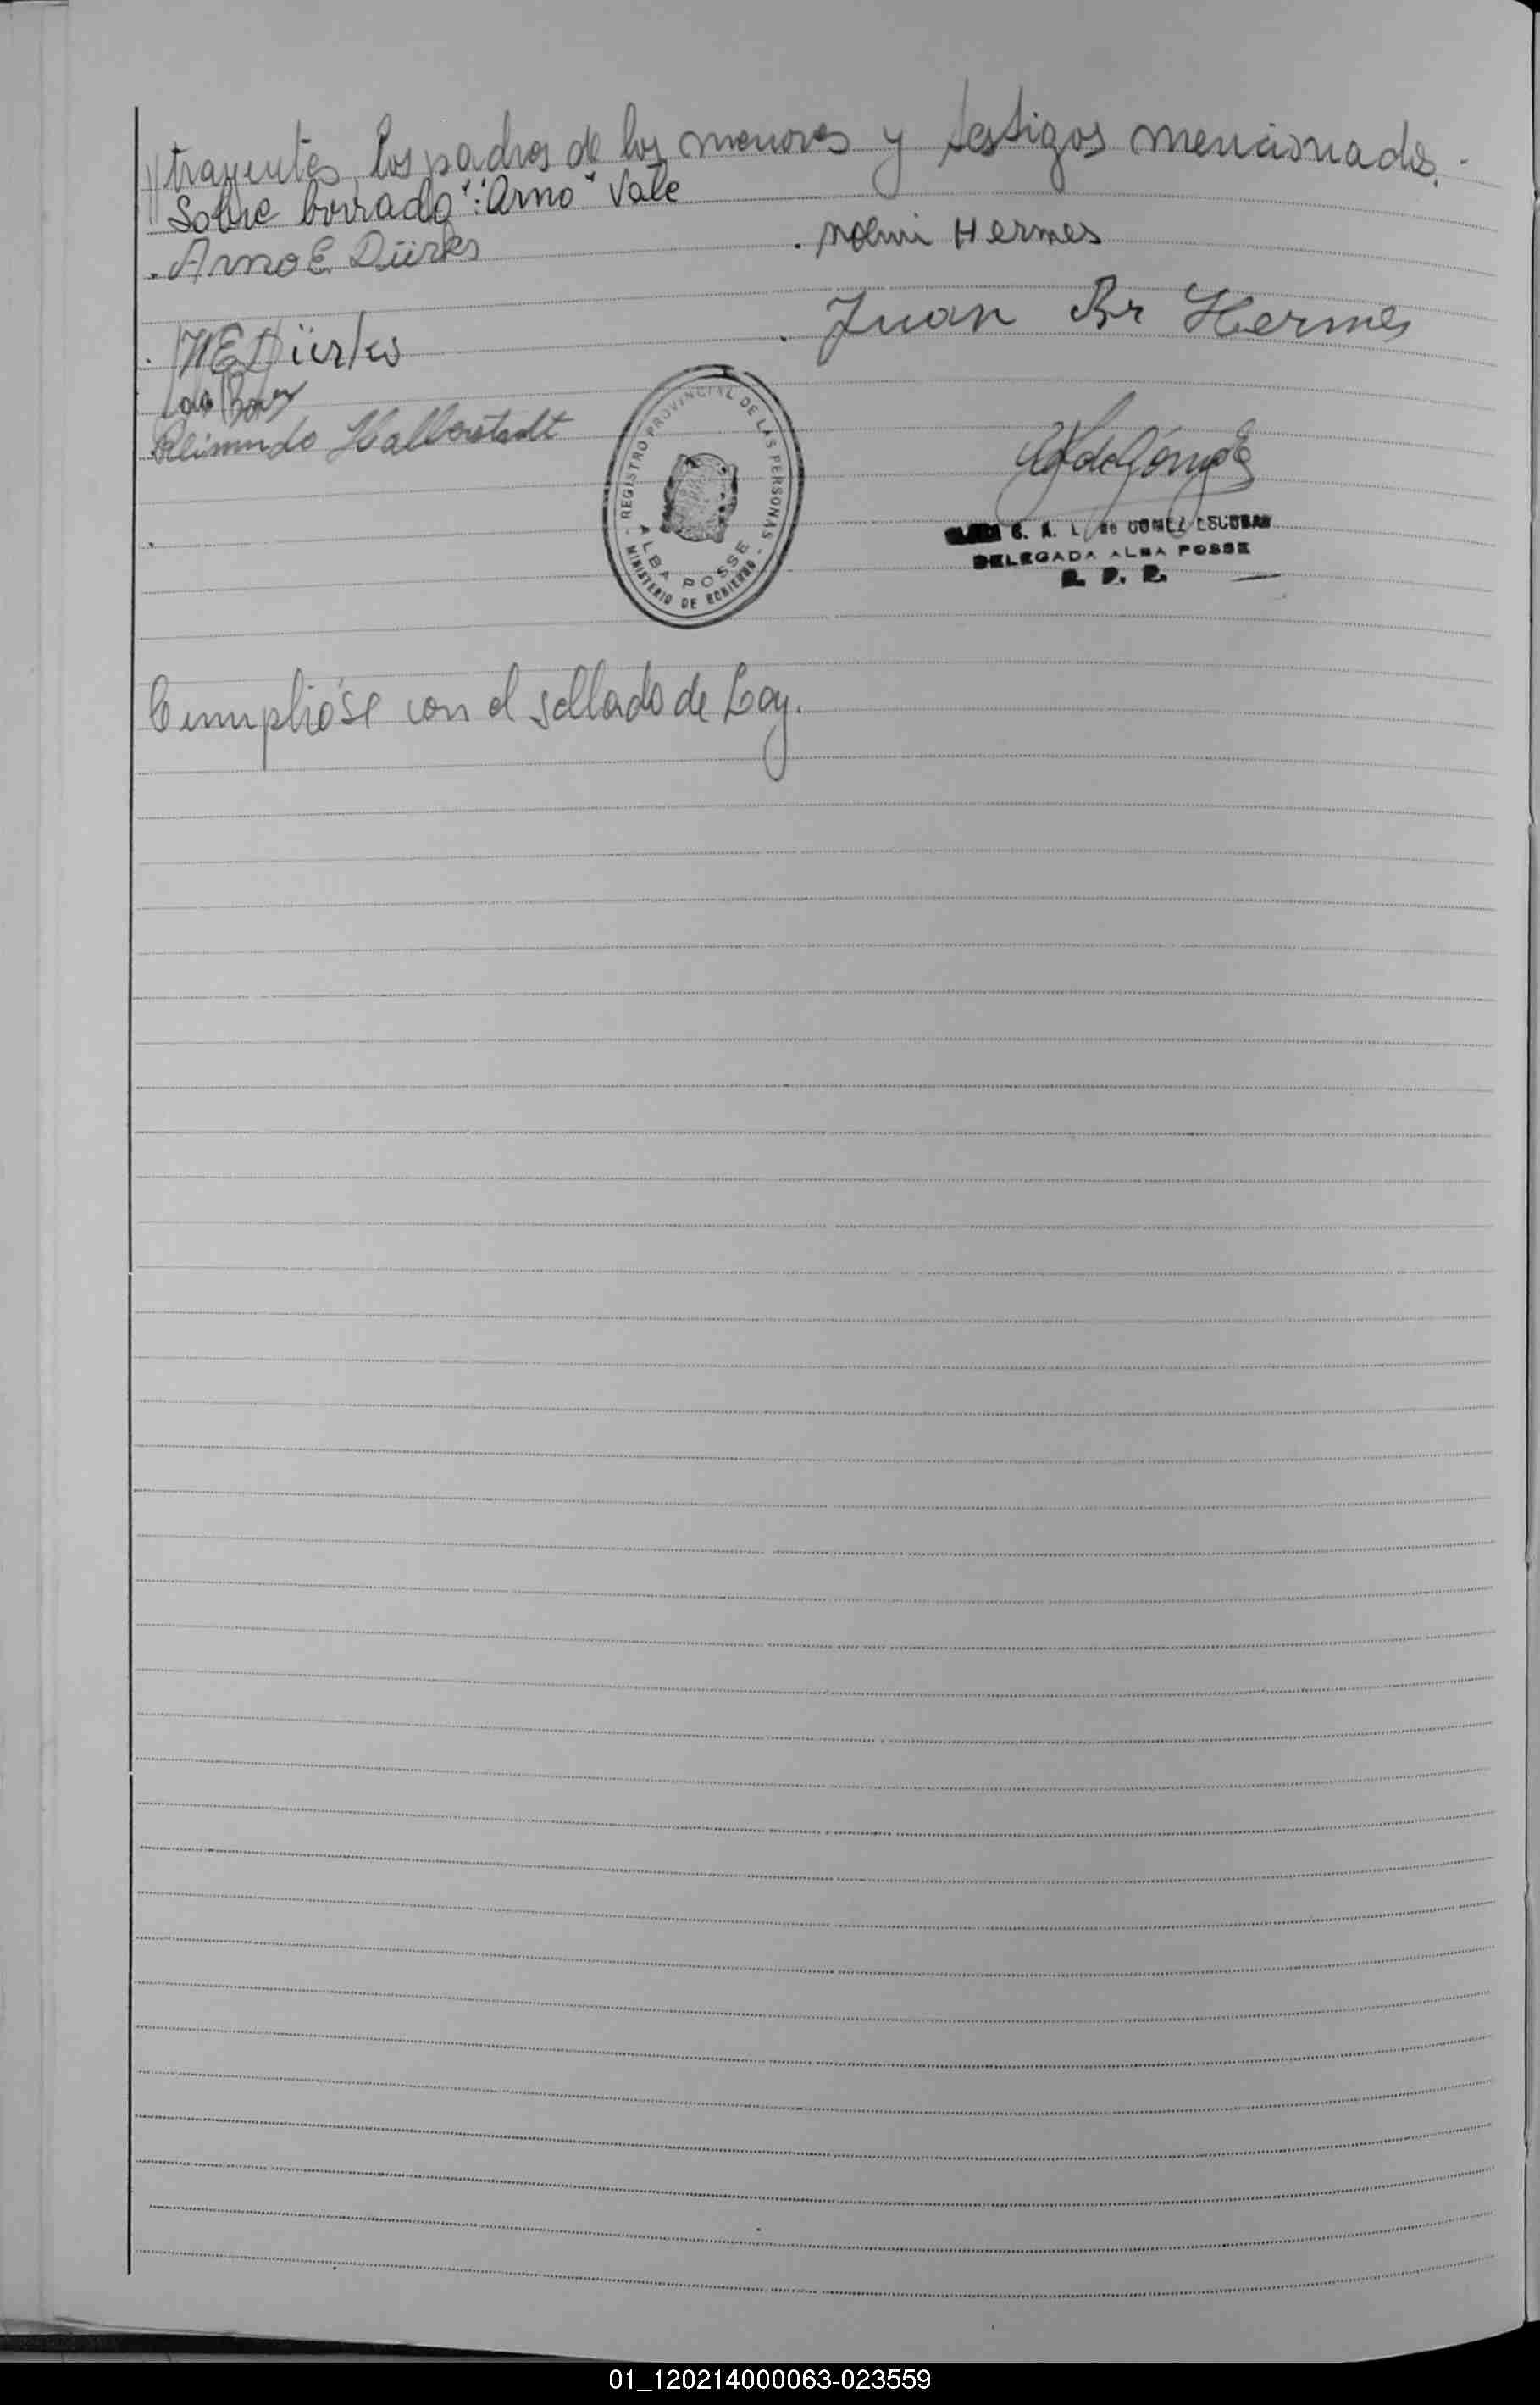 //trayentes, los padres de los menores y testigos mencionados.-
Sobre borrado: "Arno" Vale
. Arno E. Dürks
. Noemi Hermes
Dürks
. Juan Br Hermes
Reimundo Halberstadt
REGISTRO PROVINCIAL DE LAS PERSONAS
ALBA POSSE
MINISTERIO DE GOBIERNO
de GOMEZ ESCOBAR
DELEGADA ALBA POSSE
R. P. P.
Cumplióse con el sellado de Ley.
01_120214000063-023559